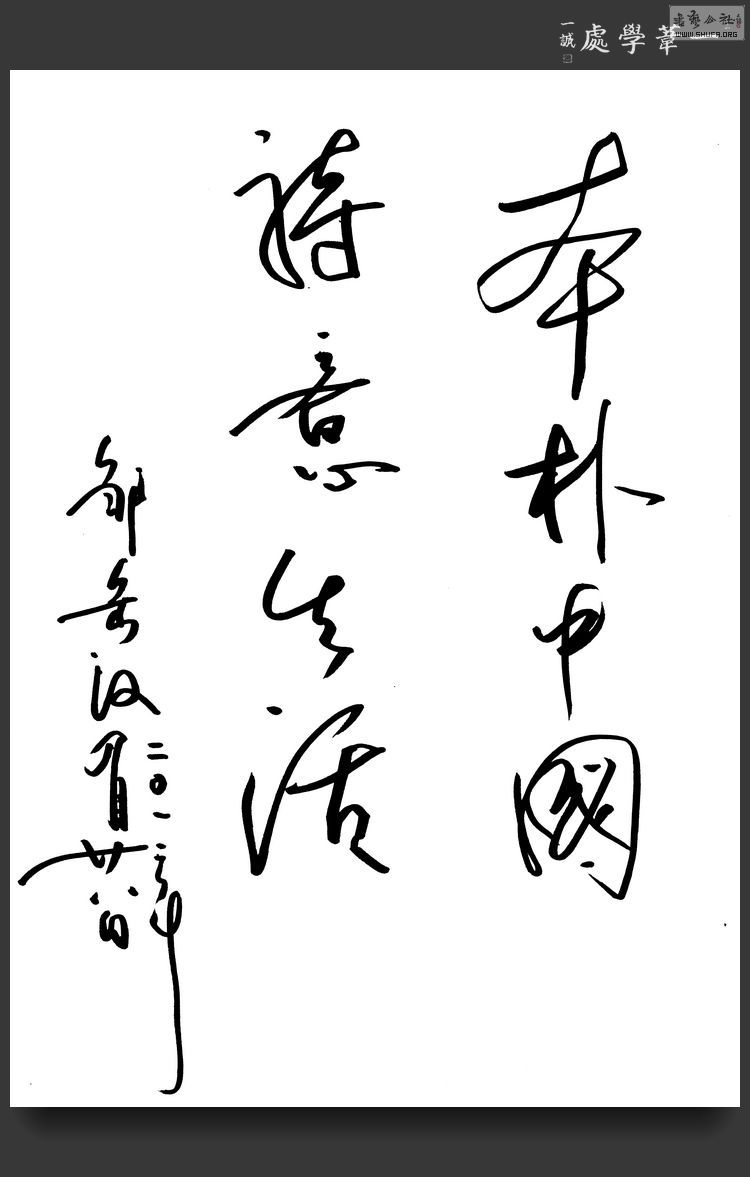 書艺公社
WWW.SHUFA.ORG
一葦學處
一誠
本朴中國
詩意生活
邹岳汉
二〇一二年
月廿八日